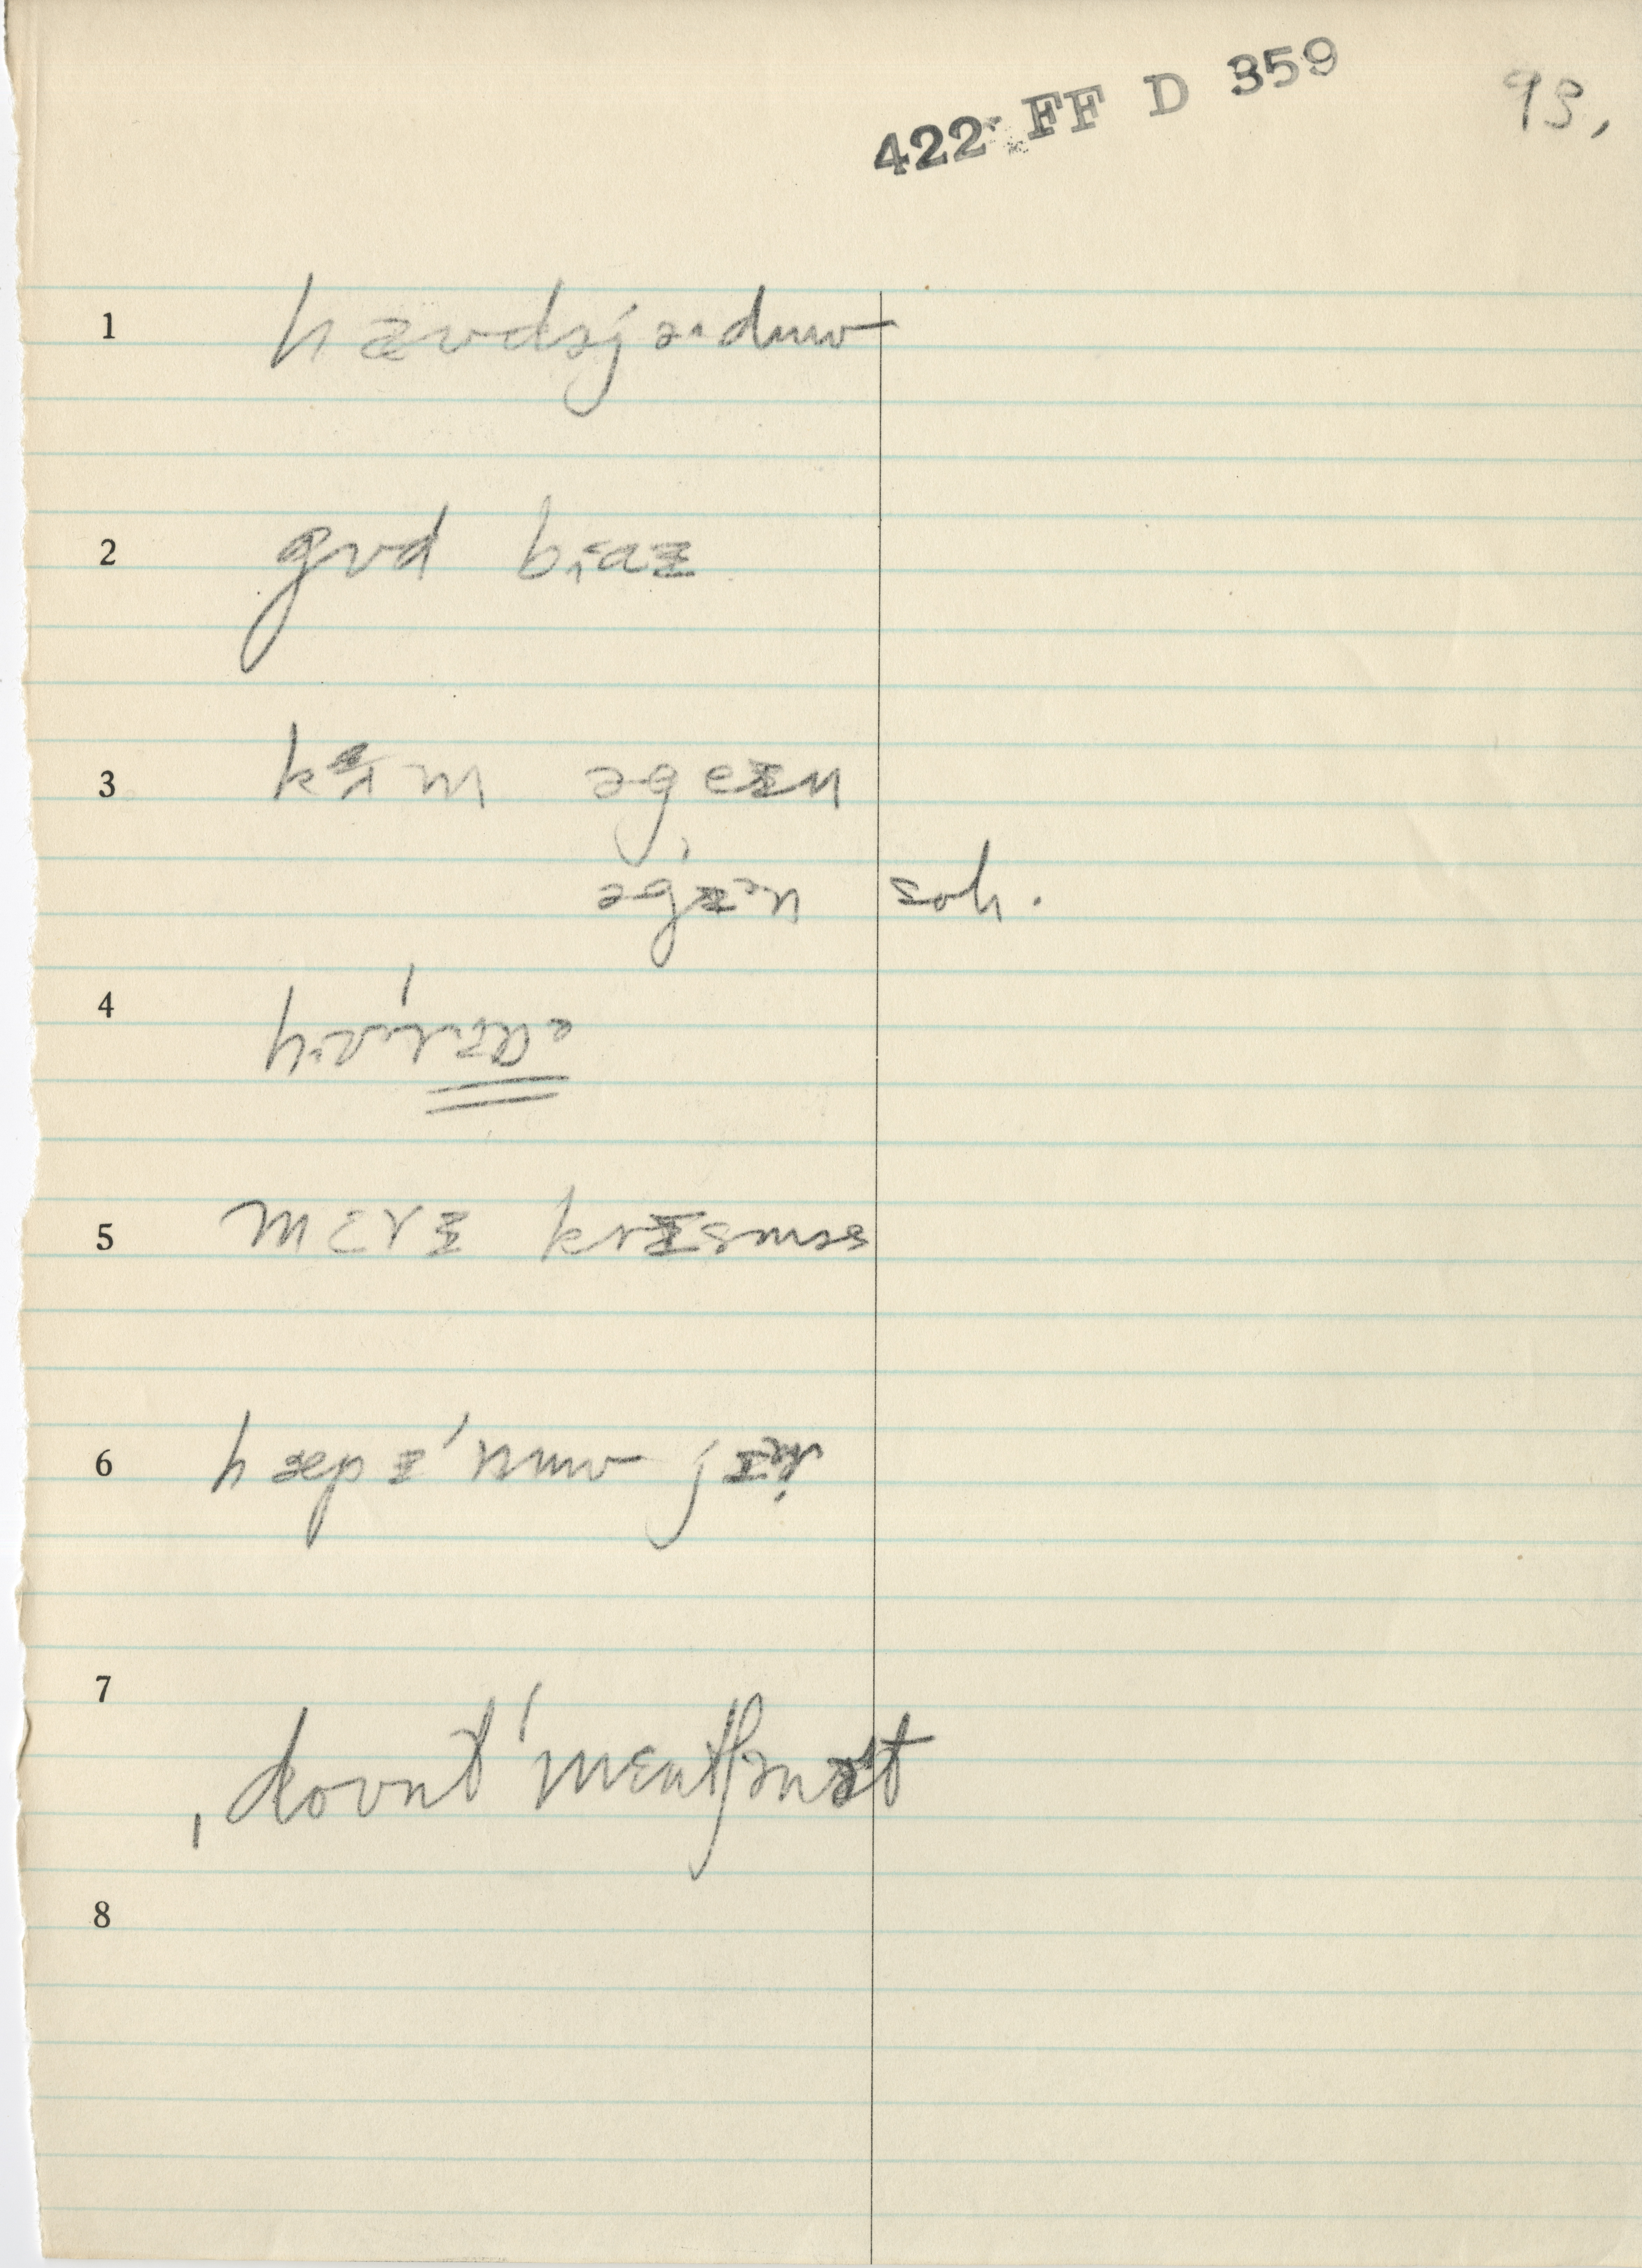 422 FF D 359
93,
1 hæʊdəjə·duw
2 gʊd baɪ
3 kʌm əgeɪn
əgɪᵊn soh.
4
5 mɛrɪ krɪsməs
6 hæpɪ ˈnuw jɪᵊr
7 ˌdoʊnt ˈmɛntʃənɪt
8